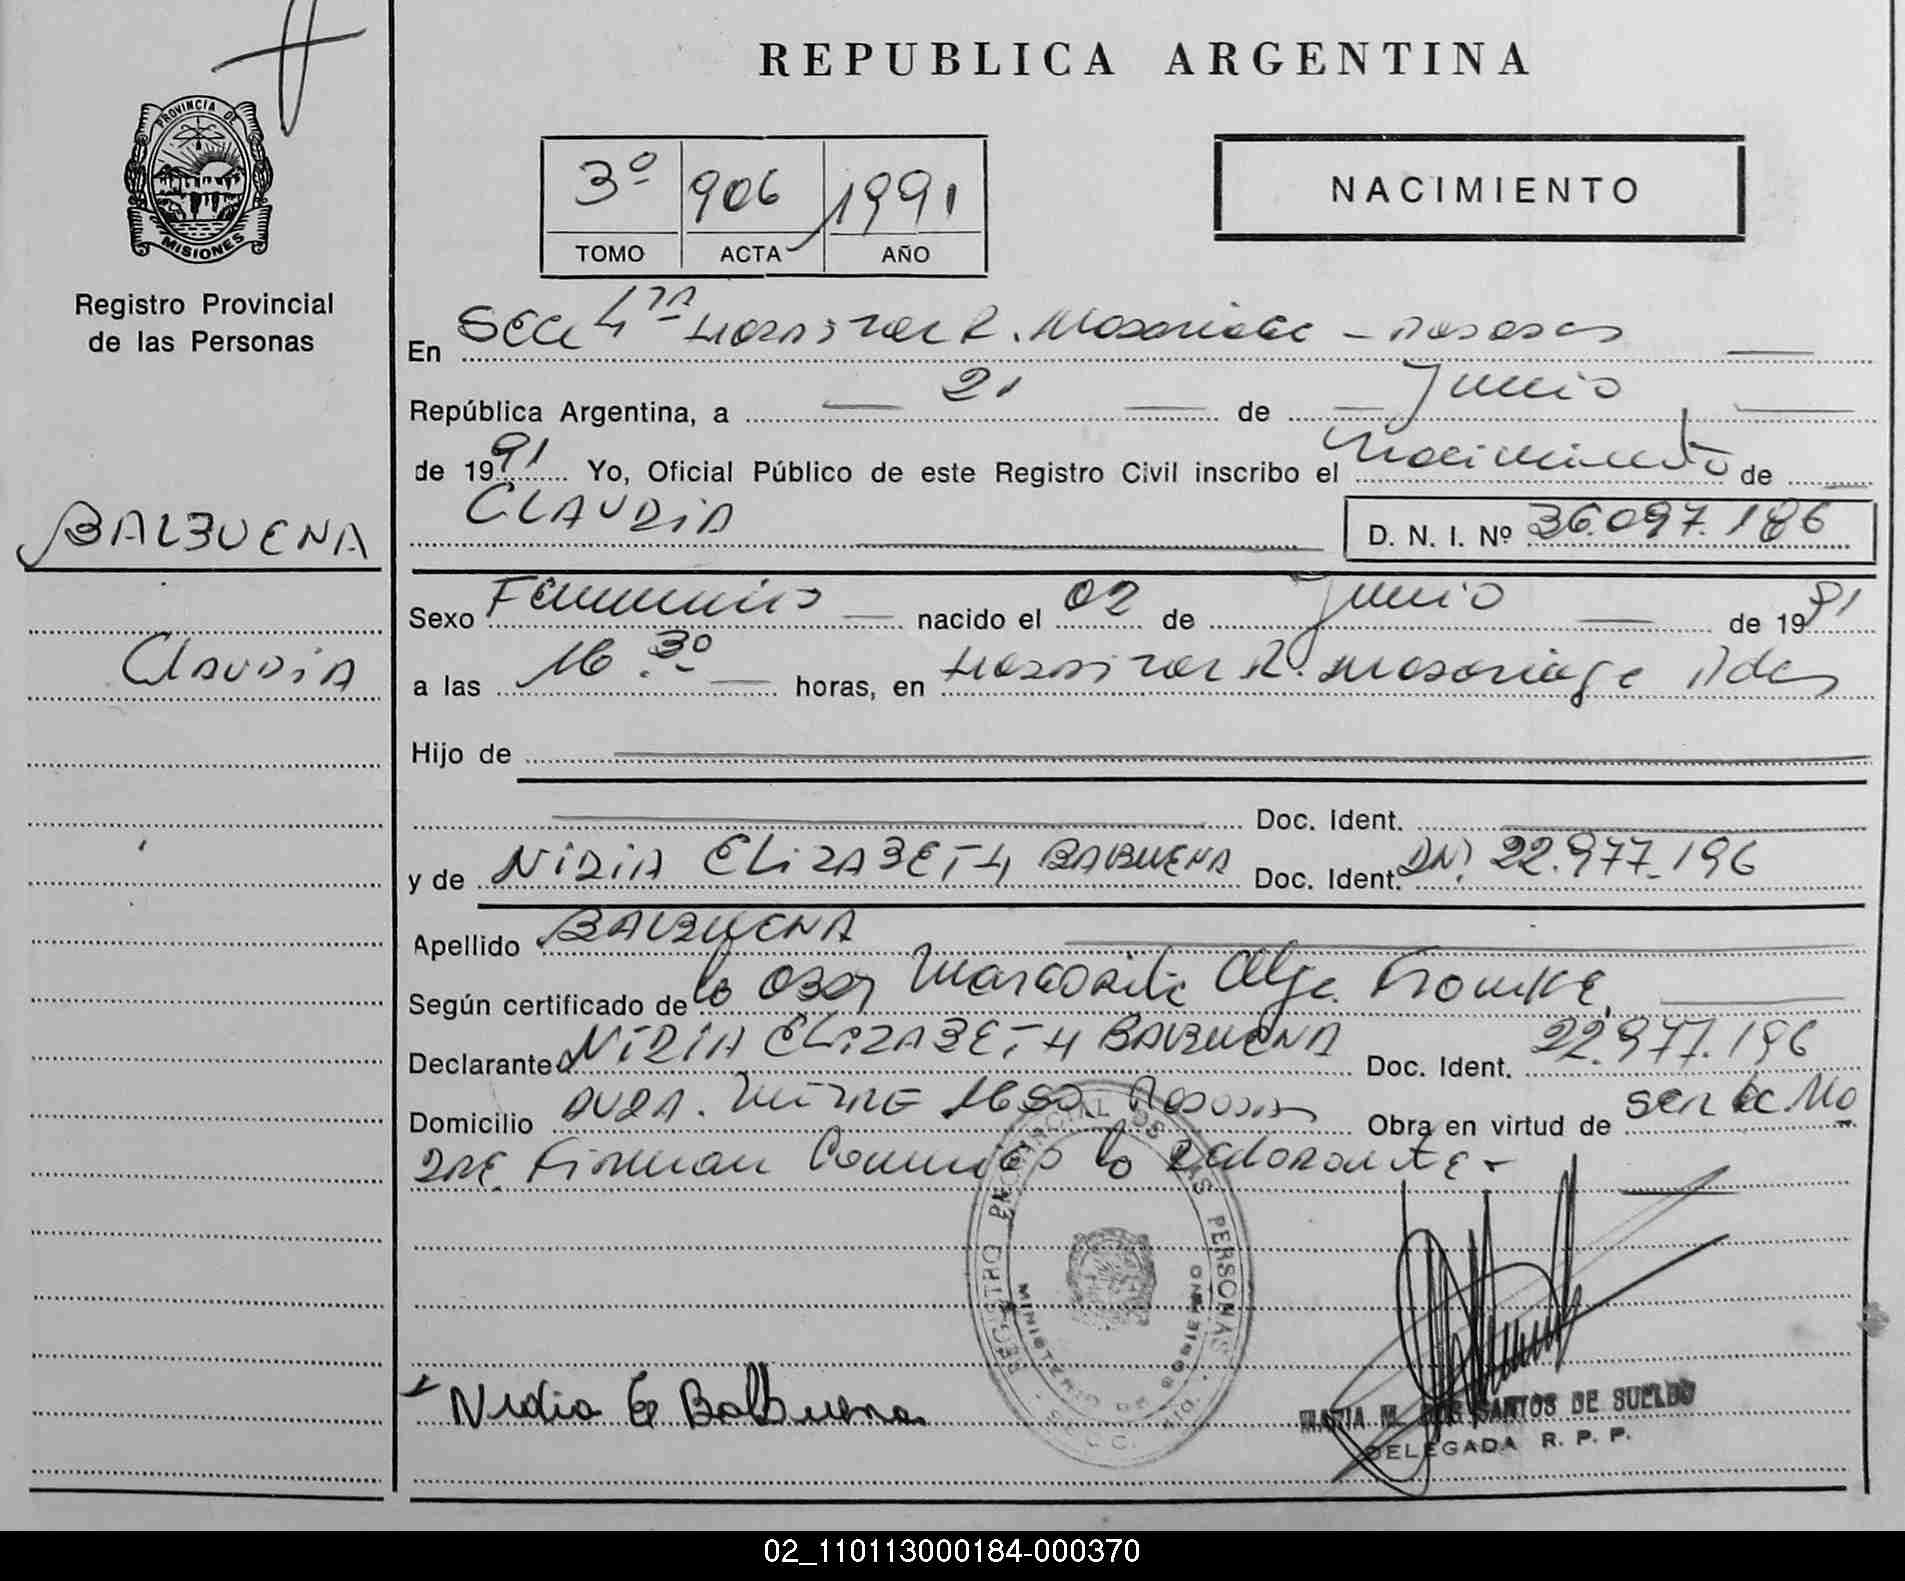 REPUBLICA ARGENTINA
PROVINCIA DE
MISIONES
Registro Provincial
de las Personas
3º 906 1991
TOMO ACTA AÑO
NACIMIENTO
En Secc 4ta Hospital R. Madariaga - Posadas
República Argentina, a 21 de Junio
de 1991 Yo, Oficial Público de este Registro Civil inscribo el Nacimiento de
CLAUDIA
D. N. I. Nº 36.097.186
BALBUENA
Claudia
Sexo Femenino nacido el 02 de Junio de 1991
a las 16.30 horas, en Hospital R. Madariaga Pdas
Hijo de
Doc. Ident.
y de NIDIA ELIZABETH BALBUENA Doc. Ident. DNI 22.977.196
Apellido BALBUENA
Según certificado de la Obst Margarita Olga
Declarante NIDIA ELIZABETH BALBUENA Doc. Ident. 22.977.196
Domicilio Avda. Mitre 1650 Posadas Obra en virtud de ser la Ma
dre. Firman Conmigo la Declarante -
REGISTRO PROVINCIAL DE LAS PERSONAS
MINISTERIO DE GOBIERNO
Nidia E Balbuena
MARIA M. DOS SANTOS DE SUELDO
DELEGADA R. P. P.
02_110113000184-000370